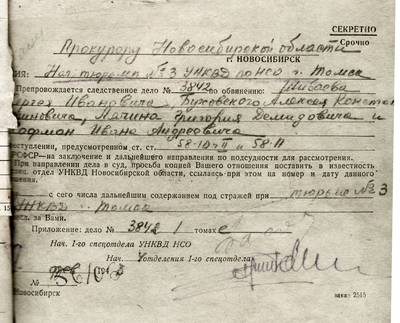 СЕКРЕТНО
Срочно
Прокурору Новосибирской области
г. НОВОСИБИРСК
ИЯ: Нач. тюрьмы №3 УНКВД по НСО г. Томск
Препровождается следственное дело № 3842 по обвинению: Шибаева
Сергея Ивановича, Буховского Алексея Констан
тиновича, Лапина Григория Демидовича и
Гофман Ивана Андреевича
еступлении, предусмотренном ст. ст. 58-10-II и 58-11
РСФСР—на заключение и дальнейшего направления по подсудности для рассмотрения.
При направлении дела в суд, просьба копией Вашего отношения поставить в известность
спец. отдел УНКВД Новосибирской области, ссылаясь при этом на номер и дату данного
шения.
с сего числа дальнейшим содержанием под стражей при тюрьме №3
УНКВД г. Томск
числ. за Вами.
Приложение: дело № 3842 1 томах
Нач. 1-го спецотдела УНКВД НСО
Нач. отделения 1-го спецотдела
Новосибирск
заказ 2515